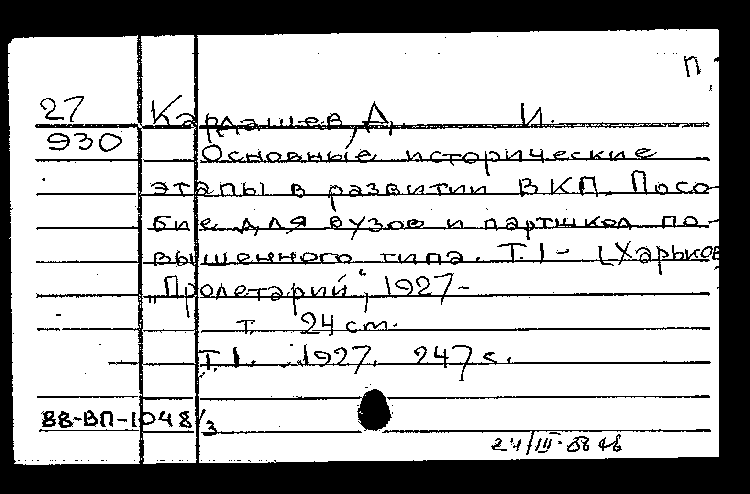 П
27 Кардашев, А. И.
930 Основные исторические
этапы в развитии ВКП. Посо-
бие для вузов и партшкол по-
вышенного типа. Т. 1 - [Харьков
"Пролетарий", 1927-
т. 24 см.
Т. 1. 1927. 247 с.
88-ВП-1048/3
24/III-88